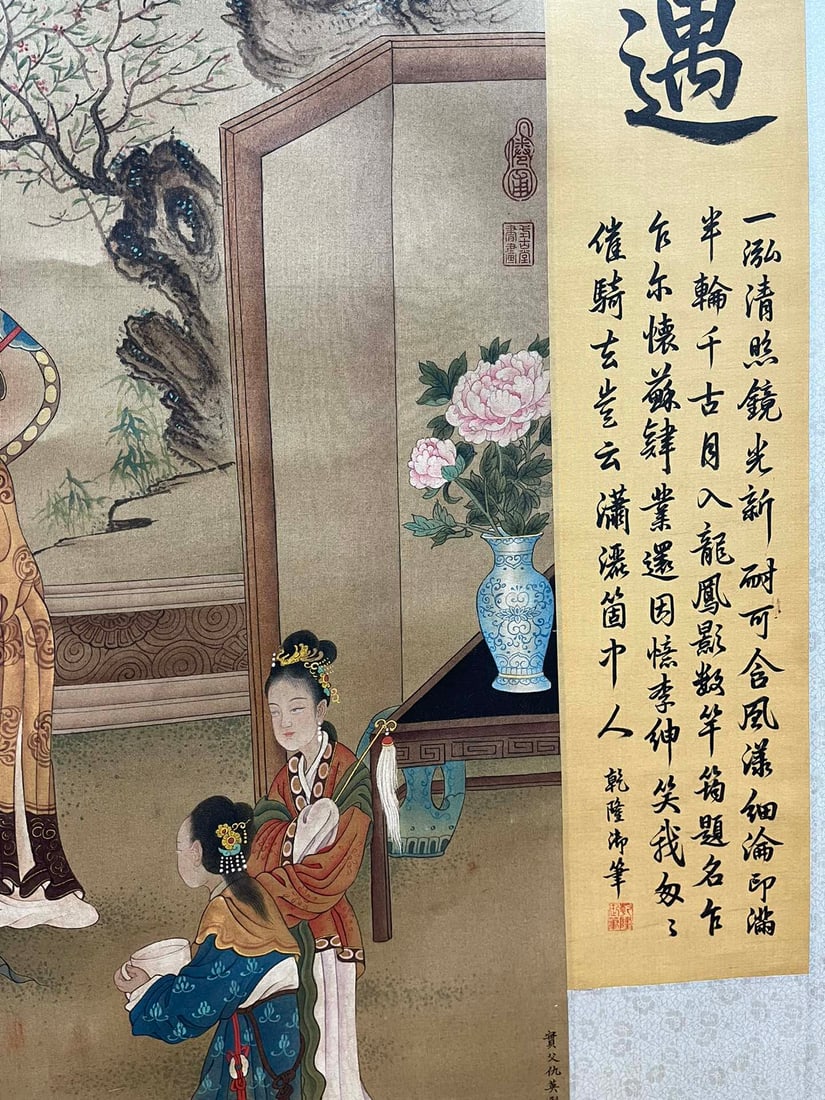 遇
一泓清照鏡光新耐可含風漾細淪印滿
半輪千古月入龍鳳影數竿筠題名乍
乍尔懷蘇肆業還因憶李紳笑我匆〻
催騎去豈云瀟灑箇中人
乾隆御筆
實父仇英